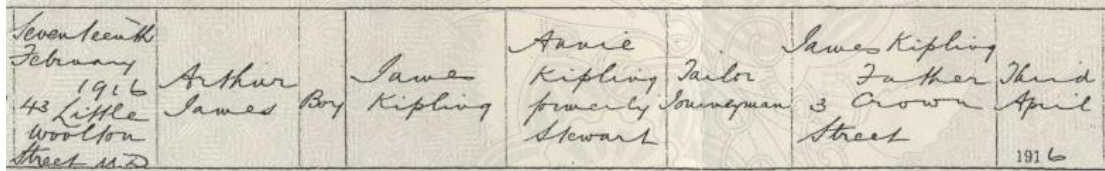 Seventeenth
February
1916
43 Little
Woolton
Street U.D.
Arthur
James
Boy
James
Kipling
Annie
Kipling
formerly
Stewart
Tailor
Journeyman
James Kipling
Father
3 Crown
Street
Third
April
1916